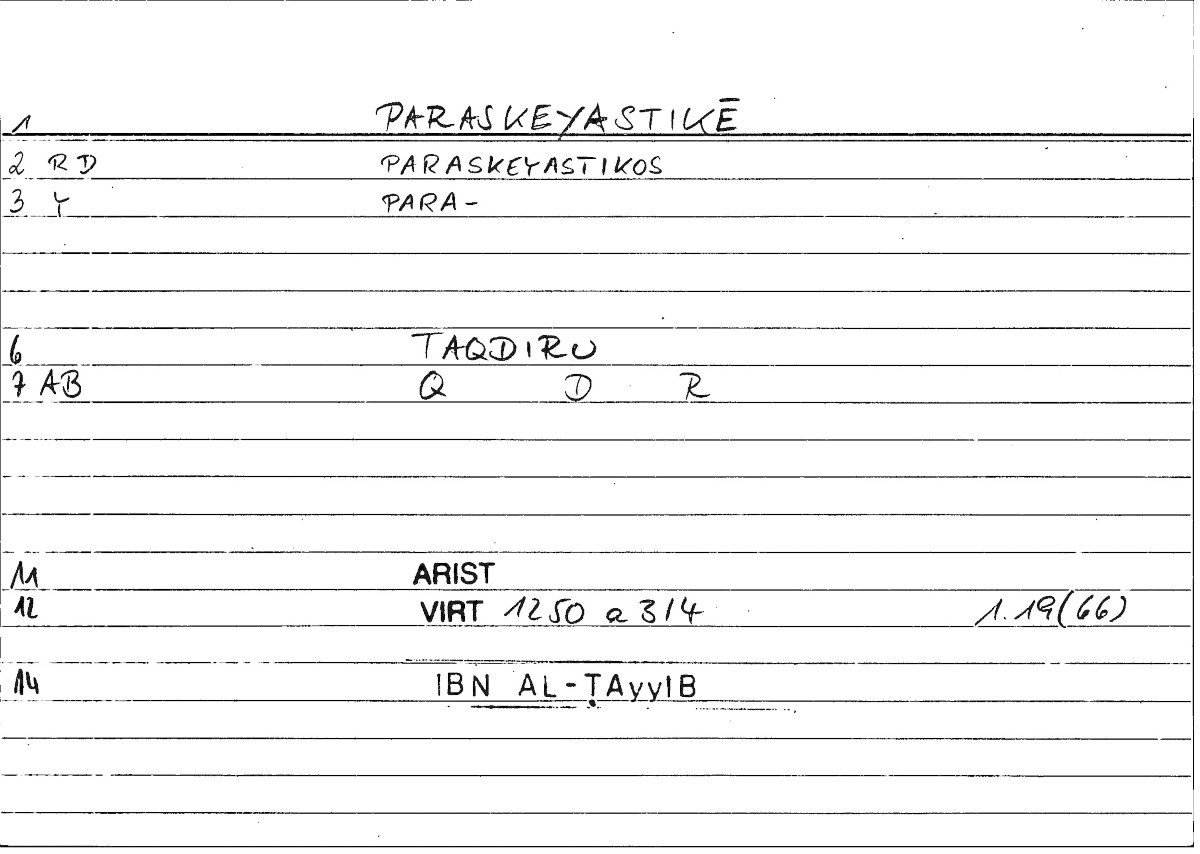 1 PARASKEYASTIKĒ
2 RD PARASKEYASTIKOS
3 Y PARA-
6 TAQDIRU
7 AB Q D R
11 ARIST
12 VIRT 1250 a 3/4 1.19(66)
14 IBN AL-ṬAyyIB